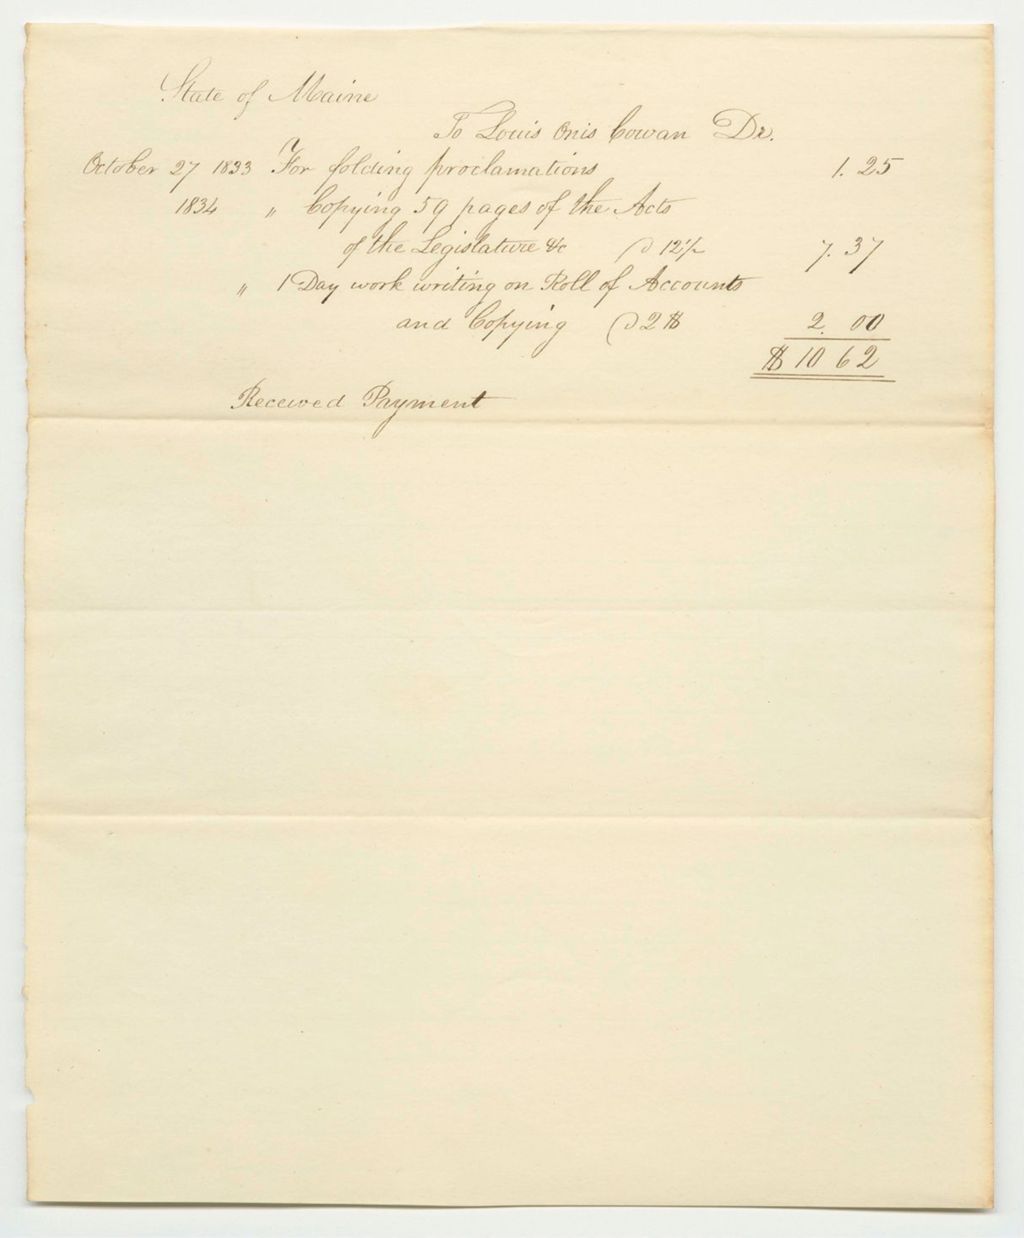 State of Maine
To Louis Onis Cowan Dr.
October 27 1833 For folding proclamations 1.25
1834 " Copying 59 pages of the Acts
of the Legislature &c @ 12½ 7.37
" 1 Day work writing on Roll of Accounts
and Copying @ 2$ 2.00
$10 62
Received Payment